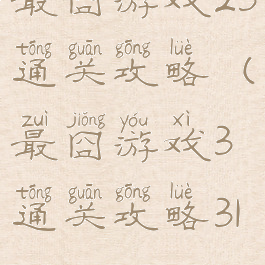 最囧游戏25
tōng guān gōng lüè
通关攻略（
zuì jiǒng yóu xì
最囧游戏3
tōng guān gōng lüè
通关攻略31